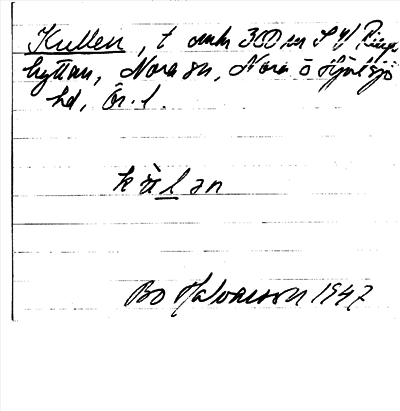 Kullen, t omkr 300 m SV Rings
hyttan, Nora sn, Nora o Hjulsjö
hd, Ör. l.
kùlən
Bo Halvarson 1947